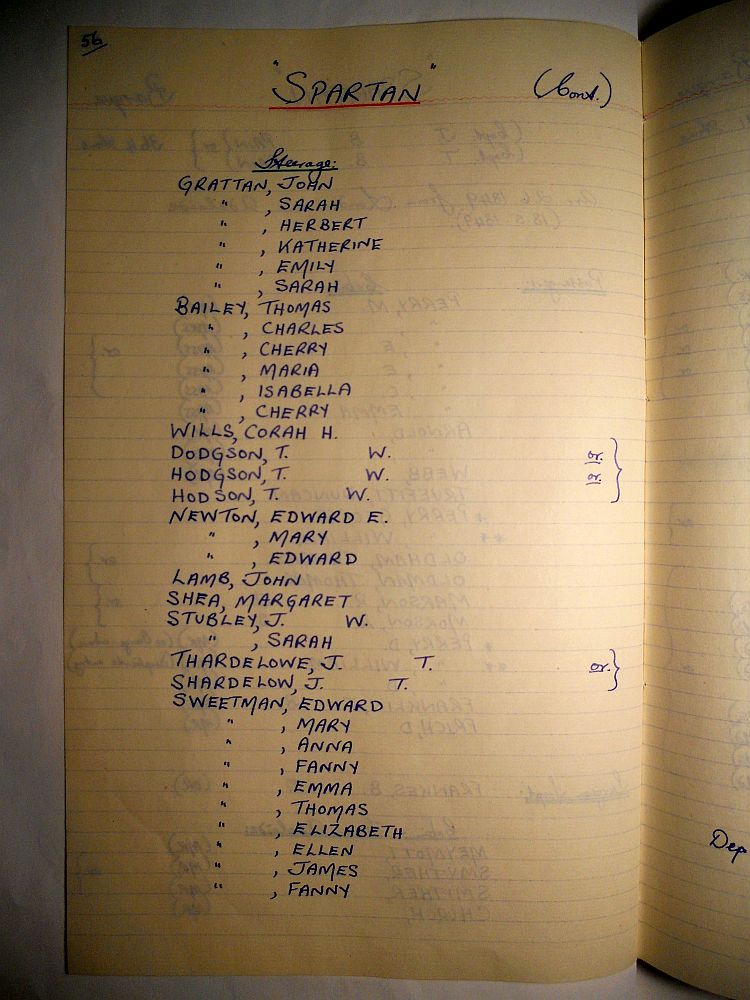 56
"SPARTAN" (Cont.)
Steerage:
GRATTAN, JOHN
" , SARAH
" , HERBERT
" , KATHERINE
" , EMILY
" , SARAH
BAILEY, THOMAS
" , CHARLES
" , CHERRY
" , MARIA
" , ISABELLA
" , CHERRY
WILLS, CORAH H.
DODGSON, T. W. or
HODGSON, T. W. or
HODSON, T. W.
NEWTON, EDWARD E.
" , MARY
" , EDWARD
LAMB, JOHN
SHEA, MARGARET
STUBLEY, J. W.
" , SARAH
THARDELOWE, J. T. or
SHARDELOW, J. T.
SWEETMAN, EDWARD
" , MARY
" , ANNA
" , FANNY
" , EMMA
" , THOMAS
" , ELIZABETH
" , ELLEN
" , JAMES
" , FANNY
Dep